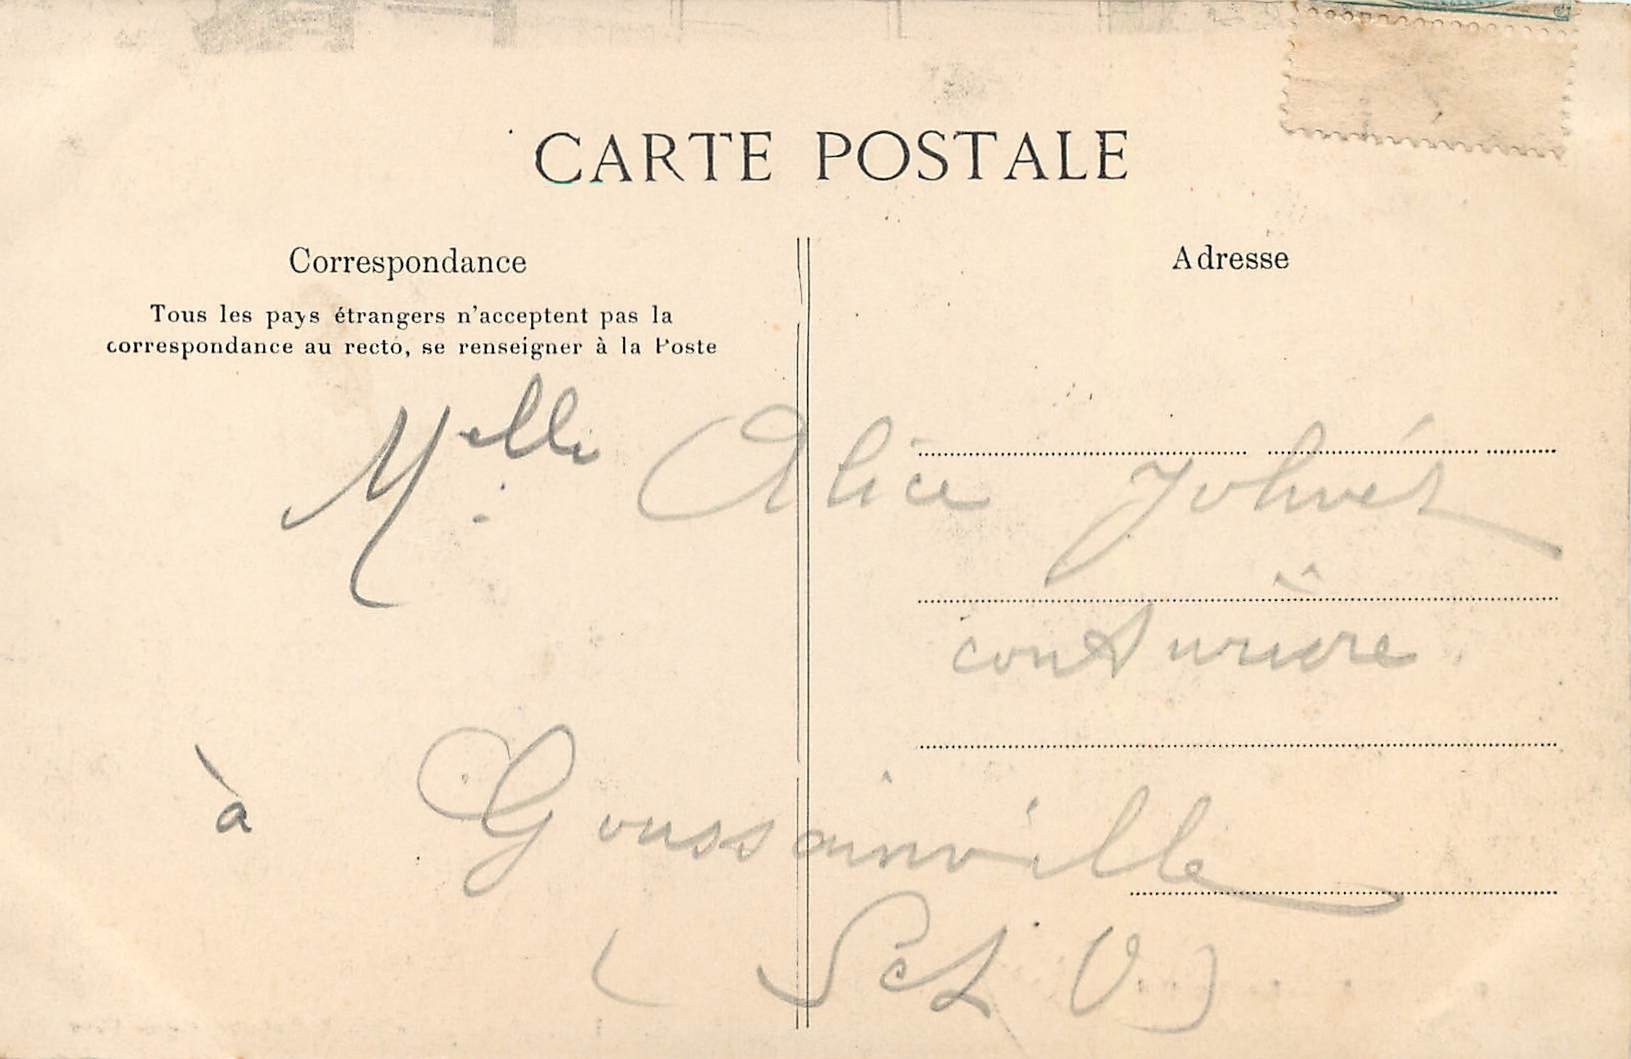 CARTE POSTALE
Correspondance
Adresse
Tous les pays étrangers n'acceptent pas la
correspondance au recto, se renseigner à la Poste
Melle Alice Jolivet
couturière
à Goussainville
(S et O)